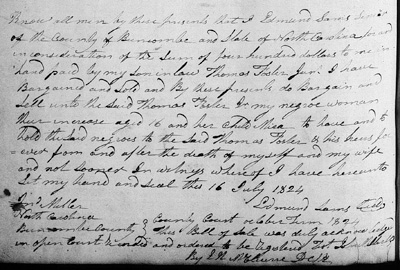 Know all men by these presents that I Edmund Sams Senr
of the County of Buncombe and State of North Carolina for and
in consideration of the Sum of four hundred dollars to me in
hand paid by my son in law Thomas Foster Jun. I have
Bargained and Sold and By these presents do Bargain and
Sell unto the Said Thomas Foster Jr my negroe woman
their increase aged 16 and her Child to have and to
hold the said negroes to the Said Thomas Foster & his heirs for
ever from and after the death of myself and my wife
and not sooner In witness whereof I have hereunto
Set my hand and Seal this 16 July 1824
Miller Edmund Sams
North Carolina County Court october Term 1824
Buncombe County This Bill of Sale was duly acknowledged
in open Court and ordered to be registered
By